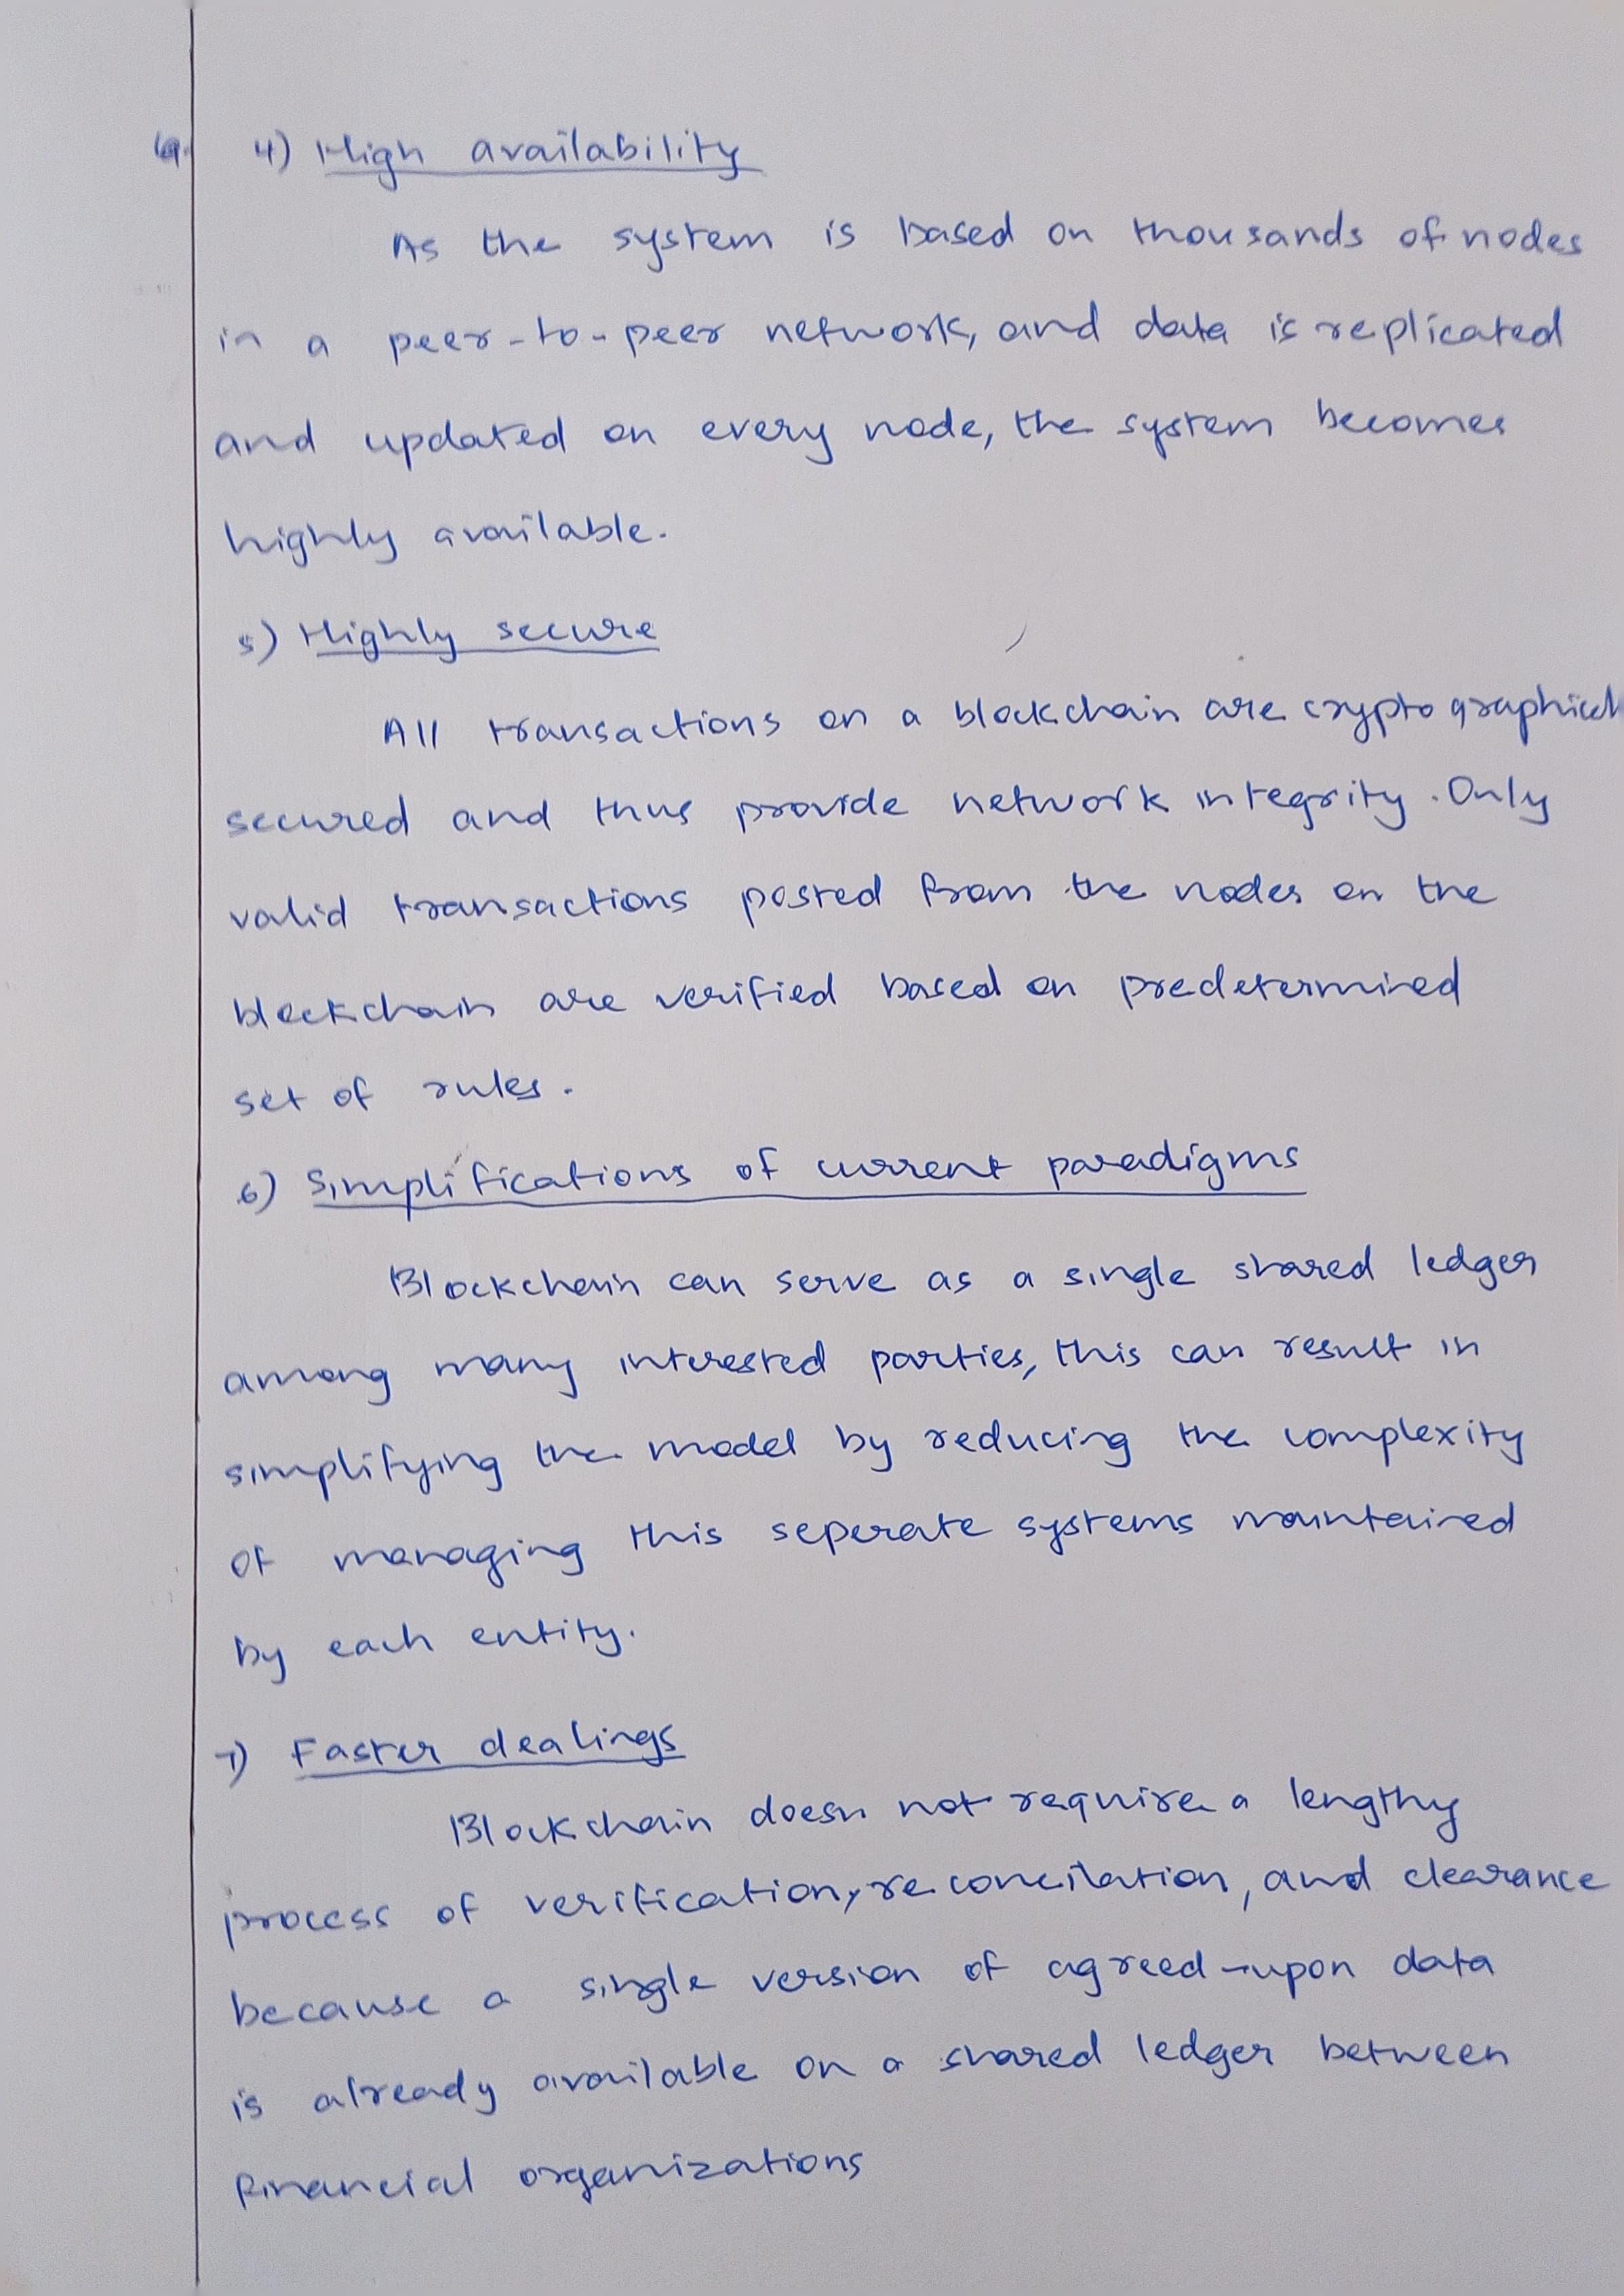 4) High availability
As the system is based on thousands of nodes
in a peer-to-peer network, and data is replicated
and updated on every node, the system becomes
highly available.
5) Highly secure
All transactions on a blockchain are
secured and thus provide network integrity. Only
valid transactions posted from the nodes on the
blockchain are verified based on predetermined
set of rules.
6) Simplifications of current paradigms
Blockchain can serve as a single shared ledger
among many interested parties, this can result in
simplifying the model by reducing the complexity
of managing this seperate systems maintained
by each entity.
7) Faster dealings
Blockchain does not require a lengthy
process of verification, reconcilation, and clearance
because a single version of agreed-upon data
is already available on a shared ledger between
financial organizations